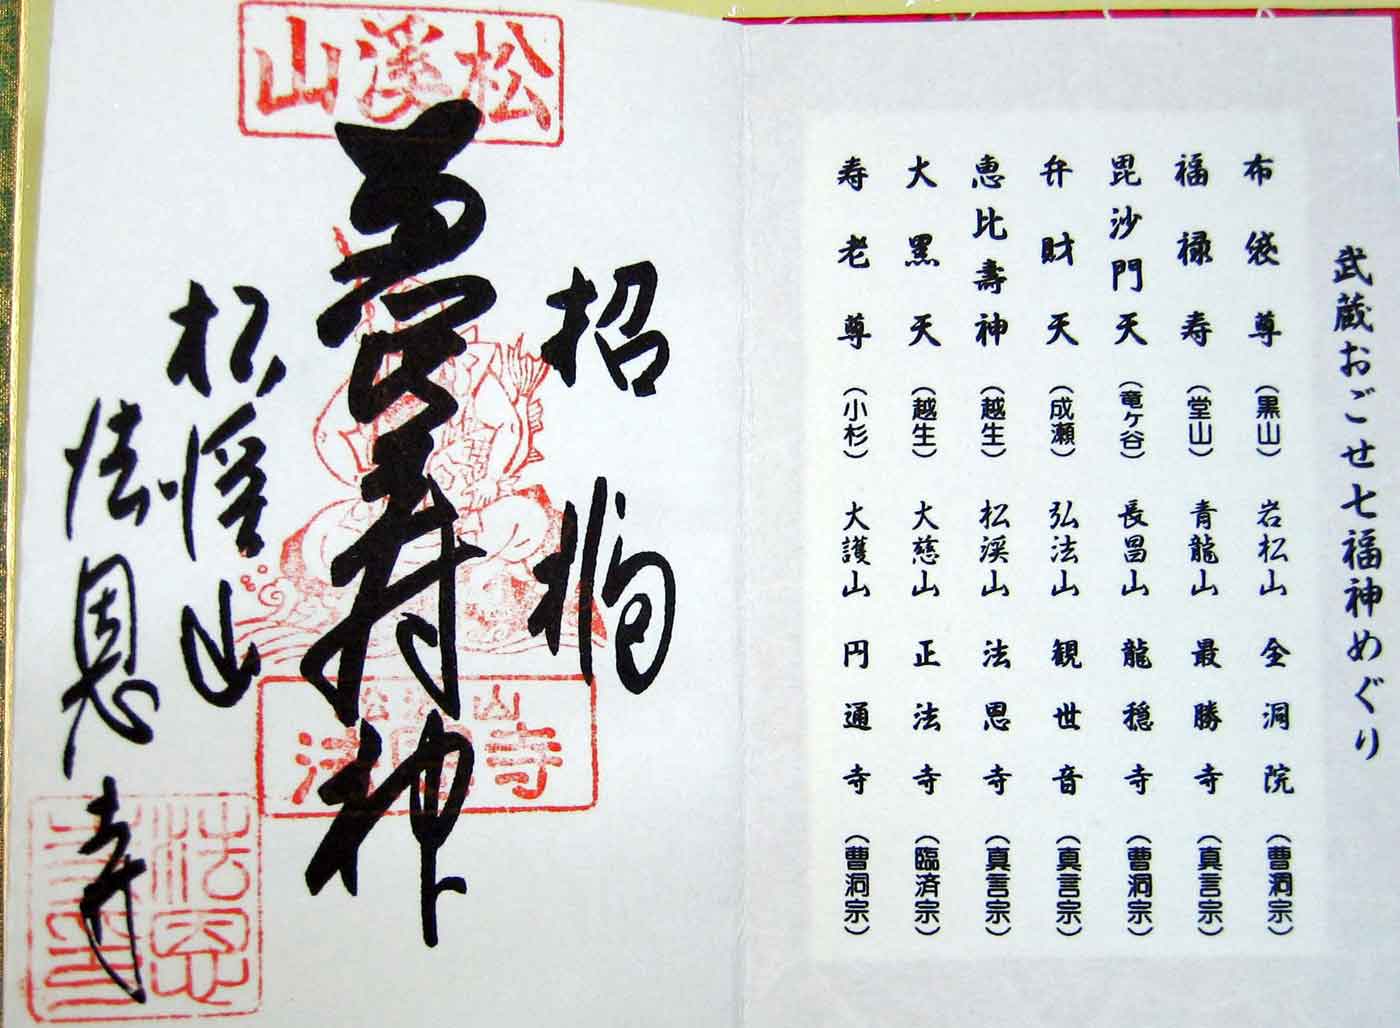 武蔵おごせ七福神めぐり
布袋尊（黒山）岩松山全洞院（曹洞宗）
福禄寿（堂山）青龍山最勝寺（真言宗）
毘沙門天（竜ヶ谷）長昌山龍穏寺（曹洞宗）
弁財天（成瀬）弘法山観世音（真言宗）
恵比壽神（越生）松渓山法恩寺（真言宗）
大黒天（越生）大慈山正法寺（臨済宗）
寿老尊（小杉）大護山円通寺（曹洞宗）
松渓山
招福
恵比寿神
松渓山
法恩寺
松渓山
法恩寺
法恩
寺印